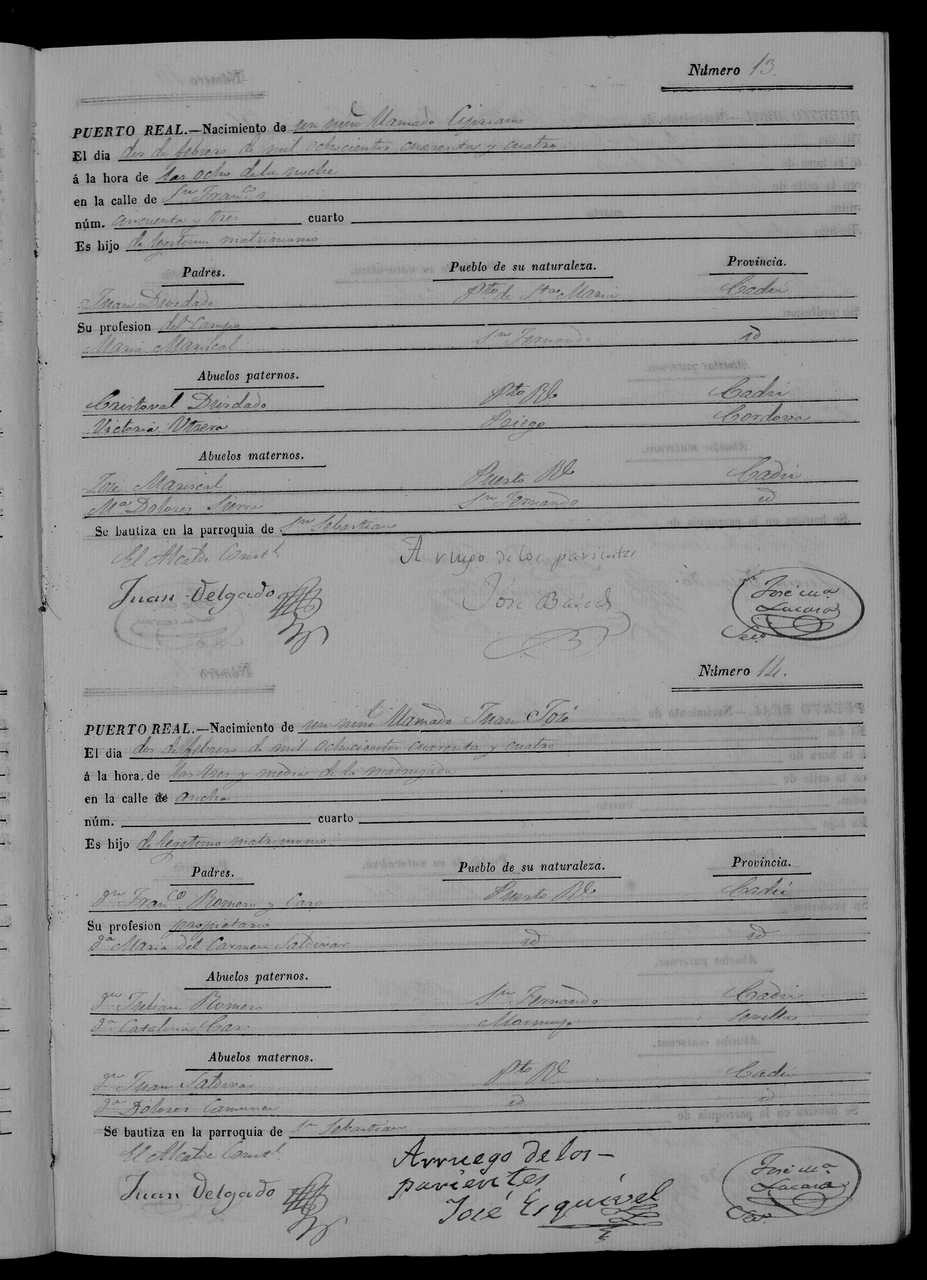 Número 13.
PUERTO REAL.—Nacimiento de un niño llamado Cipriano
El dia dos de febrero de mil ochocientos cuarenta y cuatro
á la hora de las ocho de la noche
en la calle de Sn Franco
núm. cincuenta y tres cuarto
Es hijo de legitimo matrimonio
Padres. Pueblo de su naturaleza. Provincia.
Juan Dividado Pto de Sta Maria Cadiz
Su profesion del Campo
Maria Mariscal Sn Fernando id
Abuelos paternos.
Cristoval Dividado Pto Rl Cadiz
Victoria Utrera Priego Cordova
Abuelos maternos.
José Mariscal Puerto Rl Cadiz
Ma Dolores Sierra Sn Fernando id
Se bautiza en la parroquia de Sn Sebastian
El Alcalde Const l
A ruego de los parientes
Juan Delgado
José
José Ma
Lazaro
Srio
Número 14.
PUERTO REAL.—Nacimiento de un niño llamado Juan José
El dia dos de febrero de mil ochocientos cuarenta y cuatro
á la hora de las tres y media de la madrugada
en la calle de ancha
núm. cuarto
Es hijo de legitimo matrimonio
Padres. Pueblo de su naturaleza. Provincia.
Dn Franco Romero y Caro Puerto Rl Cadiz
Su profesion propietario
Da Maria del Carmen Saldivar id id
Abuelos paternos.
Dn Julian Romero Sn Fernando Cadiz
Da Catalina Caro Sevilla
Abuelos maternos.
Dn Juan Saldivar Pto Rl Cadiz
Da Dolores id id
Se bautiza en la parroquia de Sn Sebastian
El Alcalde Const l
Arruego de los
parientes
Juan Delgado
José Esquivel
José Ma
Lazaro
Srio